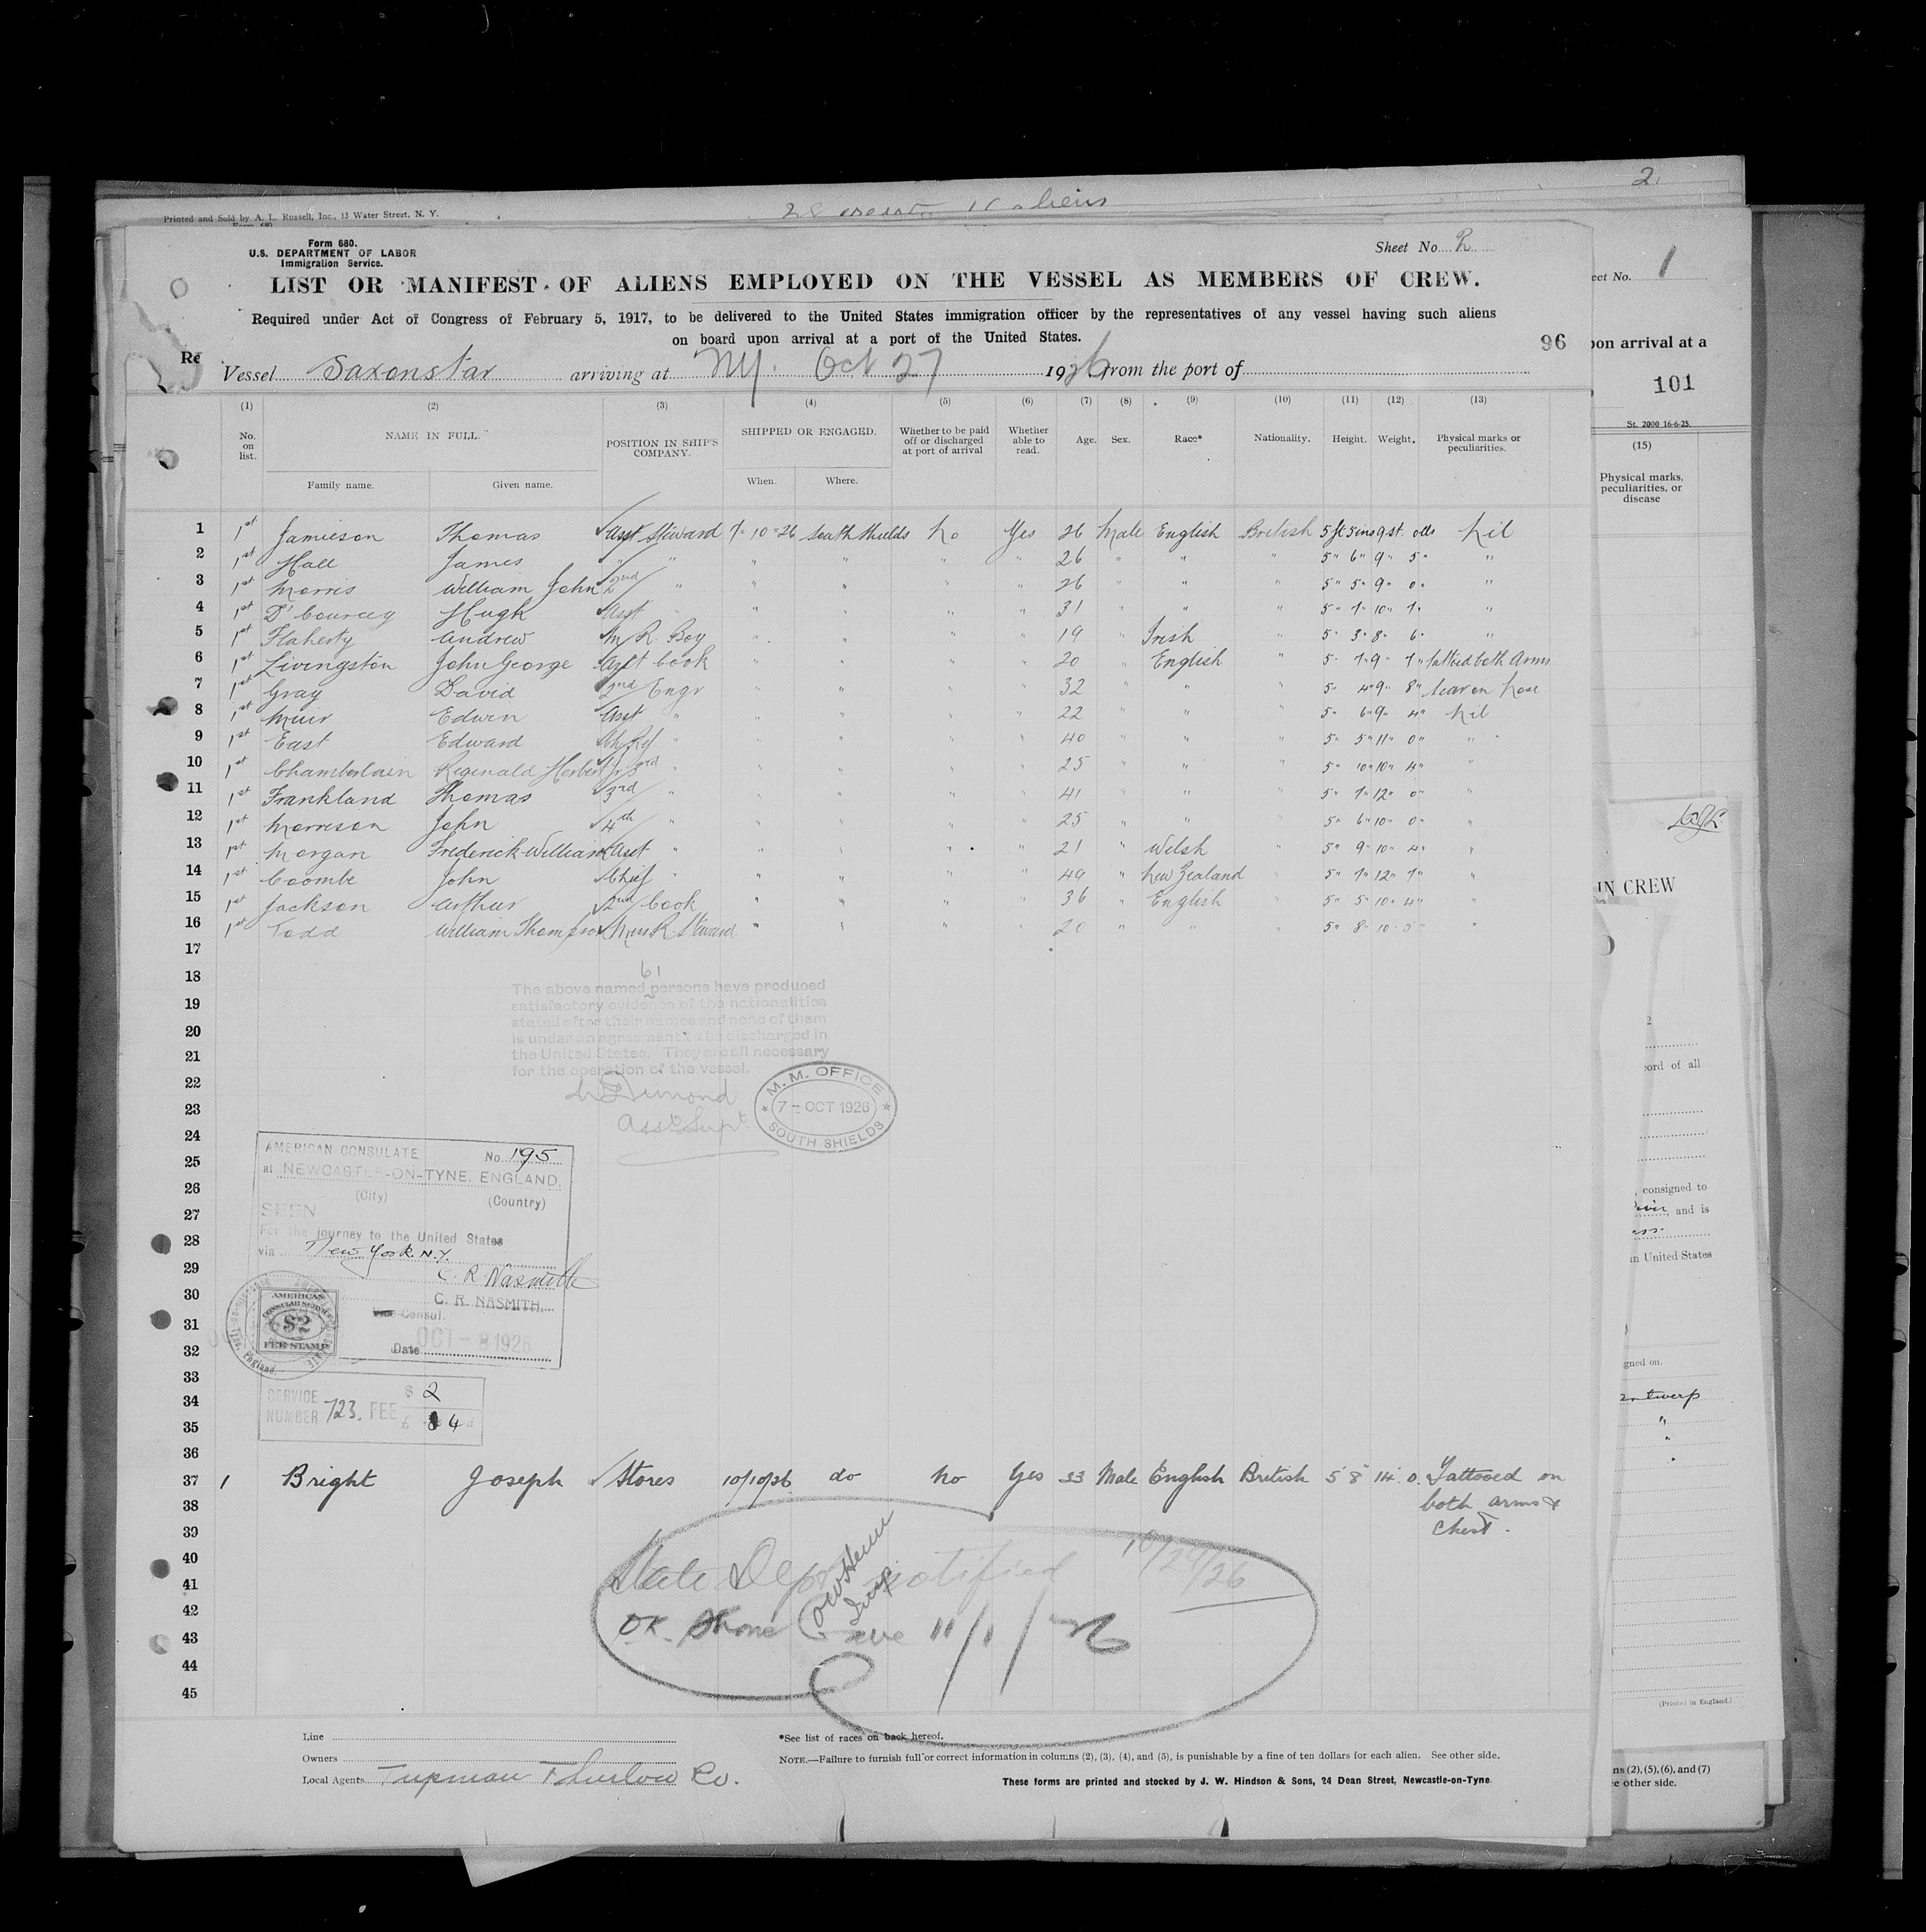 2
Printed and Sold by A. L. Russell, Inc., 13 Water Street, N. Y.
aliens
Form 680.
U.S. DEPARTMENT OF LABOR
Immigration Service.
Sheet No. 2
LIST OR MANIFEST OF ALIENS EMPLOYED ON THE VESSEL AS MEMBERS OF CREW.
Required under Act of Congress of February 5, 1917, to be delivered to the United States immigration officer by the representatives of any vessel having such aliens
on board upon arrival at a port of the United States.
96
Re
Vessel Saxonstar arriving at N.Y. Oct 27 1926 from the port of
(1) (2) (3) (4) (5) (6) (7) (8) (9) (10) (11) (12) (13)
No. on list. NAME IN FULL. Family name. Given name. POSITION IN SHIP'S COMPANY. SHIPPED OR ENGAGED. When. Where. Whether to be paid off or discharged at port of arrival Whether able to read. Age. Sex. Race* Nationality. Height. Weight. Physical marks or peculiarities.
1 1st Jamieson Thomas Asst Steward 7-10-26 South Shields No Yes 26 Male English British 5ft 5ins 9st. 0lbs Nil
2 1st Hall James " " " " " " 26 " " " 5" 6" 9" 5" "
3 1st Morris William John 2nd " " " " " 26 " " " 5" 5" 9" 0" "
4 1st D'Courcey Hugh Asst " " " " " 31 " " " 5" 7" 10" 7" "
5 1st Flaherty Andrew M. R. Boy " " " " 19 " Irish " 5" 3" 8" 6" "
6 1st Livingston John George Asst Cook " " " " 20 " English " 5" 7" 9" 7" tattoed both Arms
7 1st Gray David 2nd Engr " " " " 32 " " " 5" 4" 9" 8" Scar on Nose
8 1st Muir Edwin Asst " " " " " 22 " " " 5" 6" 9" 4" Nil
9 1st East Edward Ch Ref " " " " " 40 " " " 5" 5" 11" 0" "
10 1st Chamberlain Reginald Herbert Jr 3rd " " " " " 25 " " " 5" 10" 10" 4" "
11 1st Frankland Thomas 3rd " " " " " 41 " " " 5" 7" 12" 0" "
12 1st Morrison John 4th " " " " " 25 " " " 5" 6" 10" 0" "
13 1st Morgan Frederick William Asst " " " " " 21 " Welsh " 5" 9" 10" 4" "
14 1st Coombe John Chief " " " " " 49 " New Zealand " 5" 7" 12" 7" "
15 1st Jackson Arthur 2nd Cook " " " " 36 " English " 5" 5" 10" 4" "
16 1st Todd William Thompson Mess R. Steward " " " " 20 " " " 5" 8" 10" 5" "
17
18
19
20
21
22
23
24
25
26
27
28
29
30
31
32
33
34
35
36
61
The above named persons have produced
satisfactory evidence of the nationalities
stated after their names and none of them
is under an agreement to be discharged in
the United States. They are all necessary
for the operation of the vessel.
Dimond
Asst Supt
M. M. OFFICE
7 - OCT 1926
SOUTH SHIELDS
AMERICAN CONSULATE No. 195
at NEWCASTLE-ON-TYNE, ENGLAND.
(City) (Country)
SEEN
For the journey to the United States
via New York. N.Y.
C. R. Nasmith
C. R. NASMITH.
Vice Consul.
Date OCT - 8 1926
AMERICAN
CONSULAR SERVICE
$2
FEE STAMP
SERVICE NUMBER 723. FEE $ 2
£ 8 4 d
37 1 Bright Joseph Stores 10/10/26 do No Yes 33 Male English British 5' 8" 14. 0. Tattooed on
both arms &
Chest.
38
39
40
41
42
43
44
45
State Dept notified 10/29/26
OK. Phone 11/1/26
Line
Owners
Local Agents Tupman Thurlow Co.
*See list of races on back hereof.
NOTE.—Failure to furnish full or correct information in columns (2), (3), (4), and (5), is punishable by a fine of ten dollars for each alien. See other side.
These forms are printed and stocked by J. W. Hindson & Sons, 24 Dean Street, Newcastle-on-Tyne.
eet No. 1
pon arrival at a
101
St. 2000 16-6-25.
(15)
Physical marks,
peculiarities, or
disease
IN CREW
2
cord of all
, consigned to
River, and is
ass.
in United States
gned on.
Antwerp
"
"
"
(Printed in England.)
ns (2), (5), (6), and (7)
ee other side.